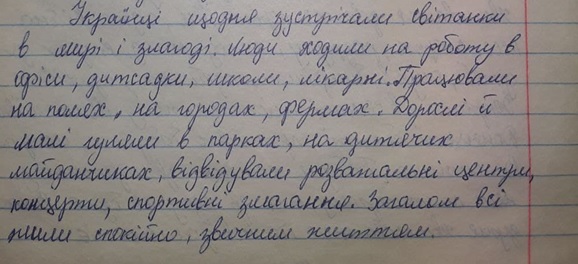 Українці щодня зустрічали світанки
в мирі і злагоді. Люди ходили на роботу в
офіси, дитсадки, школи, лікарні. Працювали
на полях, на городах, фермах. Дорослі й
малі гуляли в парках, на дитячих
майданчиках, відвідували розважальні центри,
концерти, спортивні змагання. Загалом всі
жили спокійно, звичним життям.